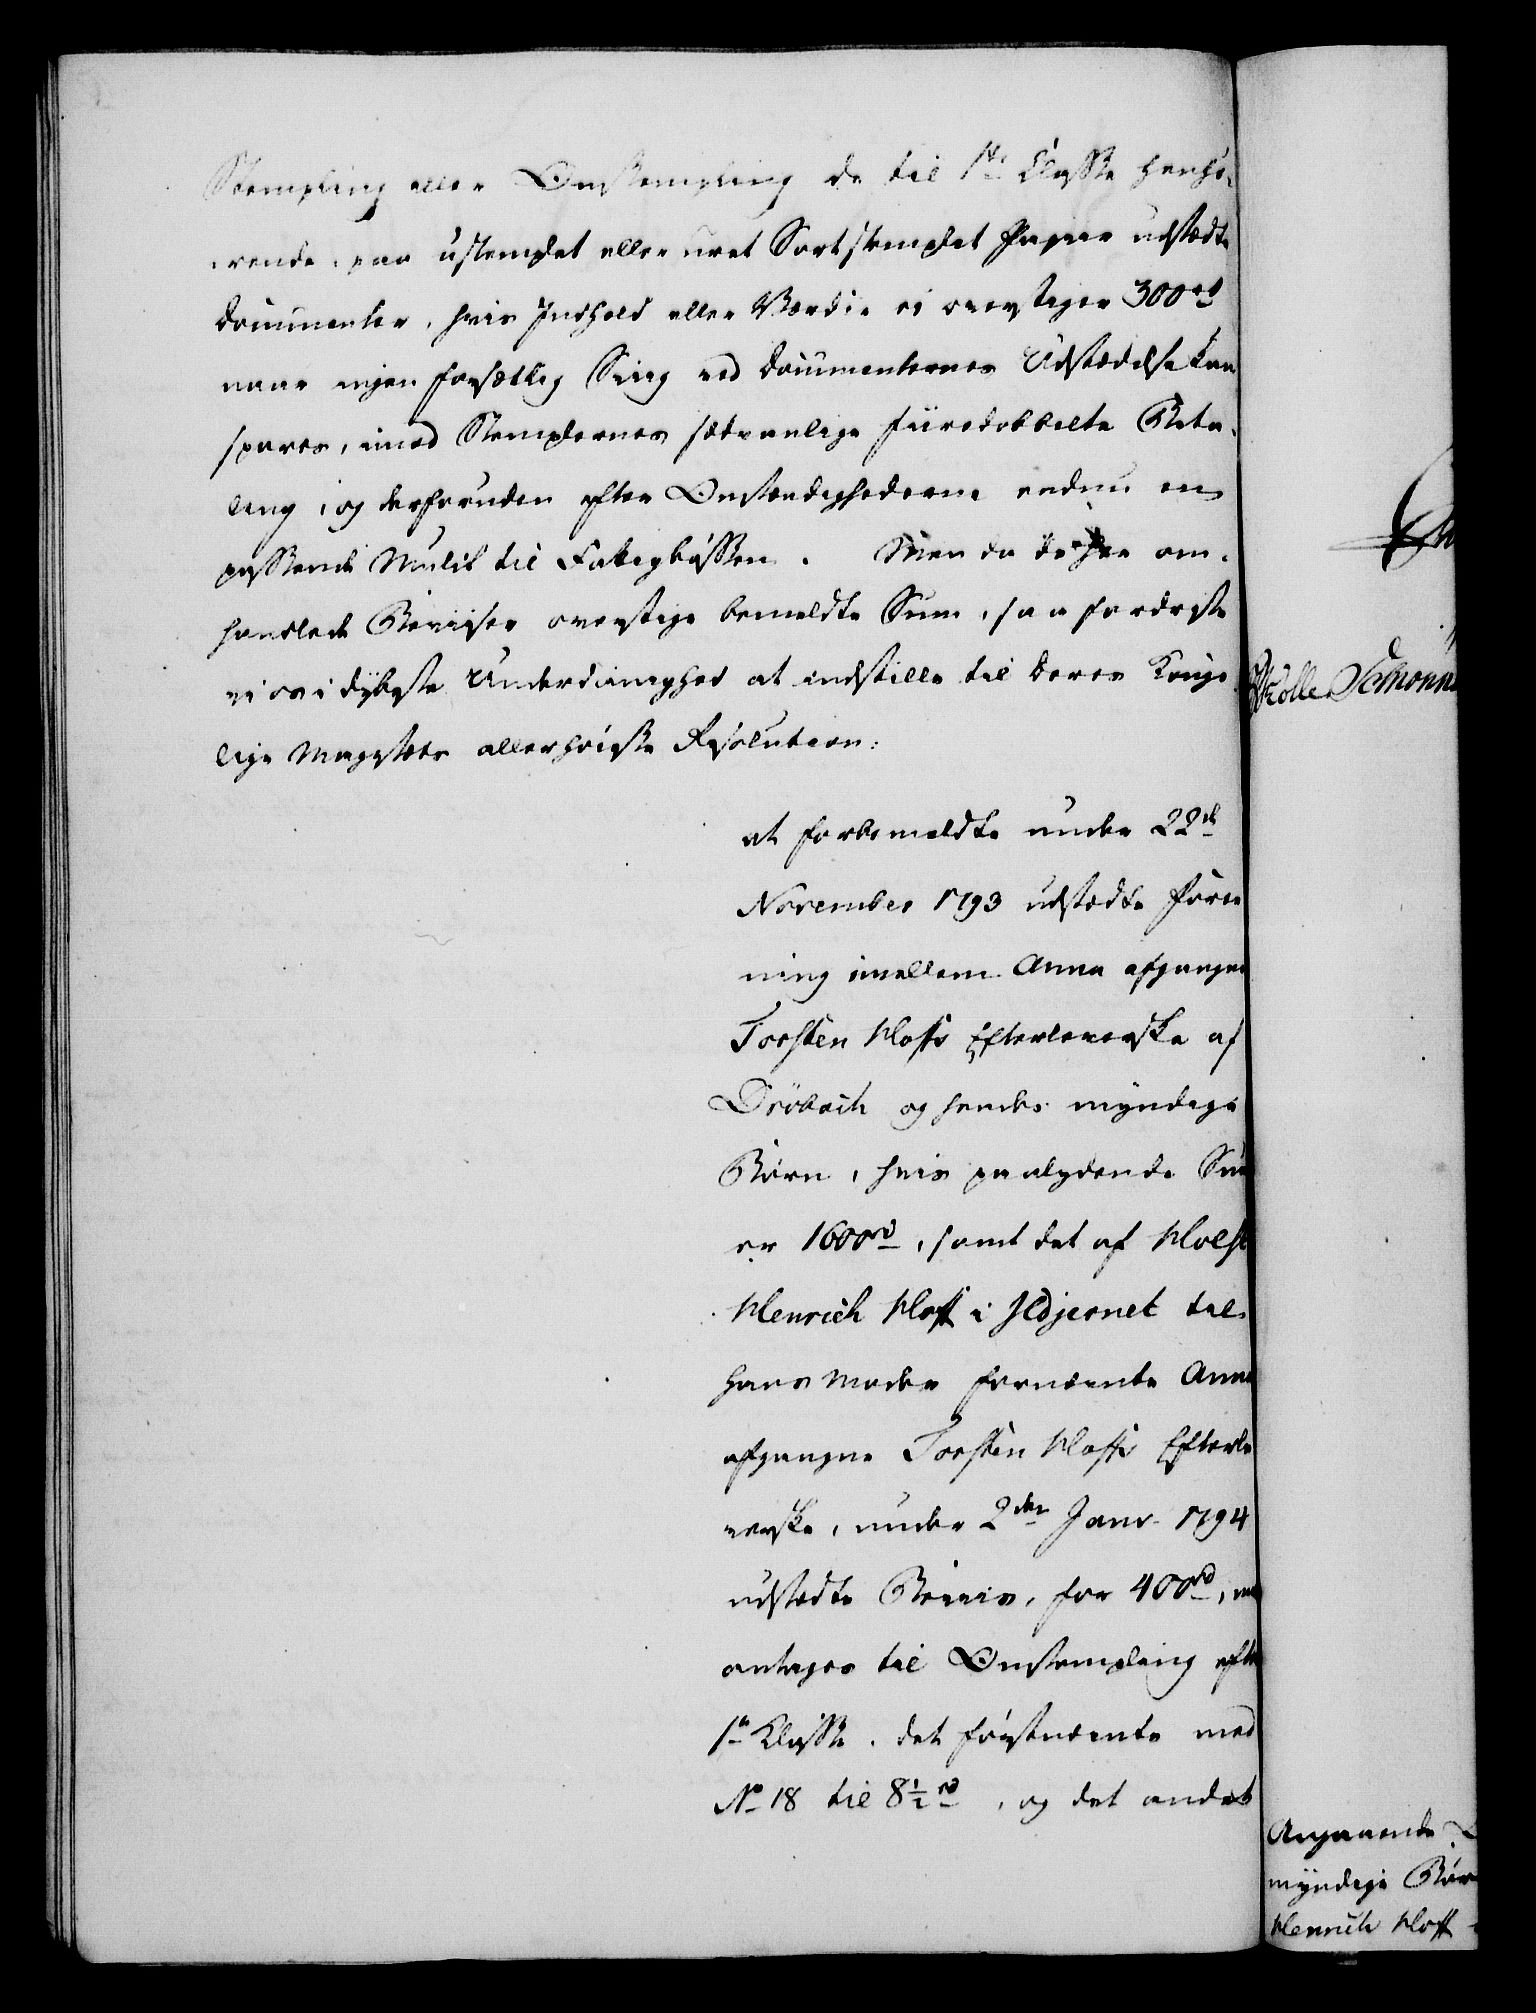 Stempling eller Omstempling de til 1ste Classe henhø-
rende, paa ustemplet eller uret Sort stemplet Papiir udstædte
Documenter, hvis Indhold eller Værdie ei overstiger 300 rd
naar ingen forsætlig Sviig ved Documenternes Udstædelse kan
spores, imod Stemplernes sædvanlige fiiredobbelte Beta-
ling, og desforuden efter Omstændighederne endnu en
passende Mulct til Fattigkassen. Men da de her om-
handlede Beviiser overstige bemeldte Sum, saa fordriste
vi os i dybeste Underdanighed at indstille til Deres Konge-
lige Majestæts allerhøieste Resolution:
at forbemeldte under 22de
November 1793 udstædte Foree
ning imellem Anne afgangne
Torsten Hoffs Efterleverske af
Dröbach og hendes myndige
Børn, hvis paalydende Sum
er 1600 rd, samt det af Holst
Henrich Hoff i Ildjernet til
hans Moder fornævnte Anne
afgangne Torsten Hoffs Efterle
verske, under 2den Janr 1794
udstædte Beviis, for 400 rd, maa
antages til Omstempling efter
1ste Classe. det førstnævnte med
No 18 til 8 1/2 rd, og det andet
Kolle Schønn
Angaaende
myndige Børn
Henrich Hoff